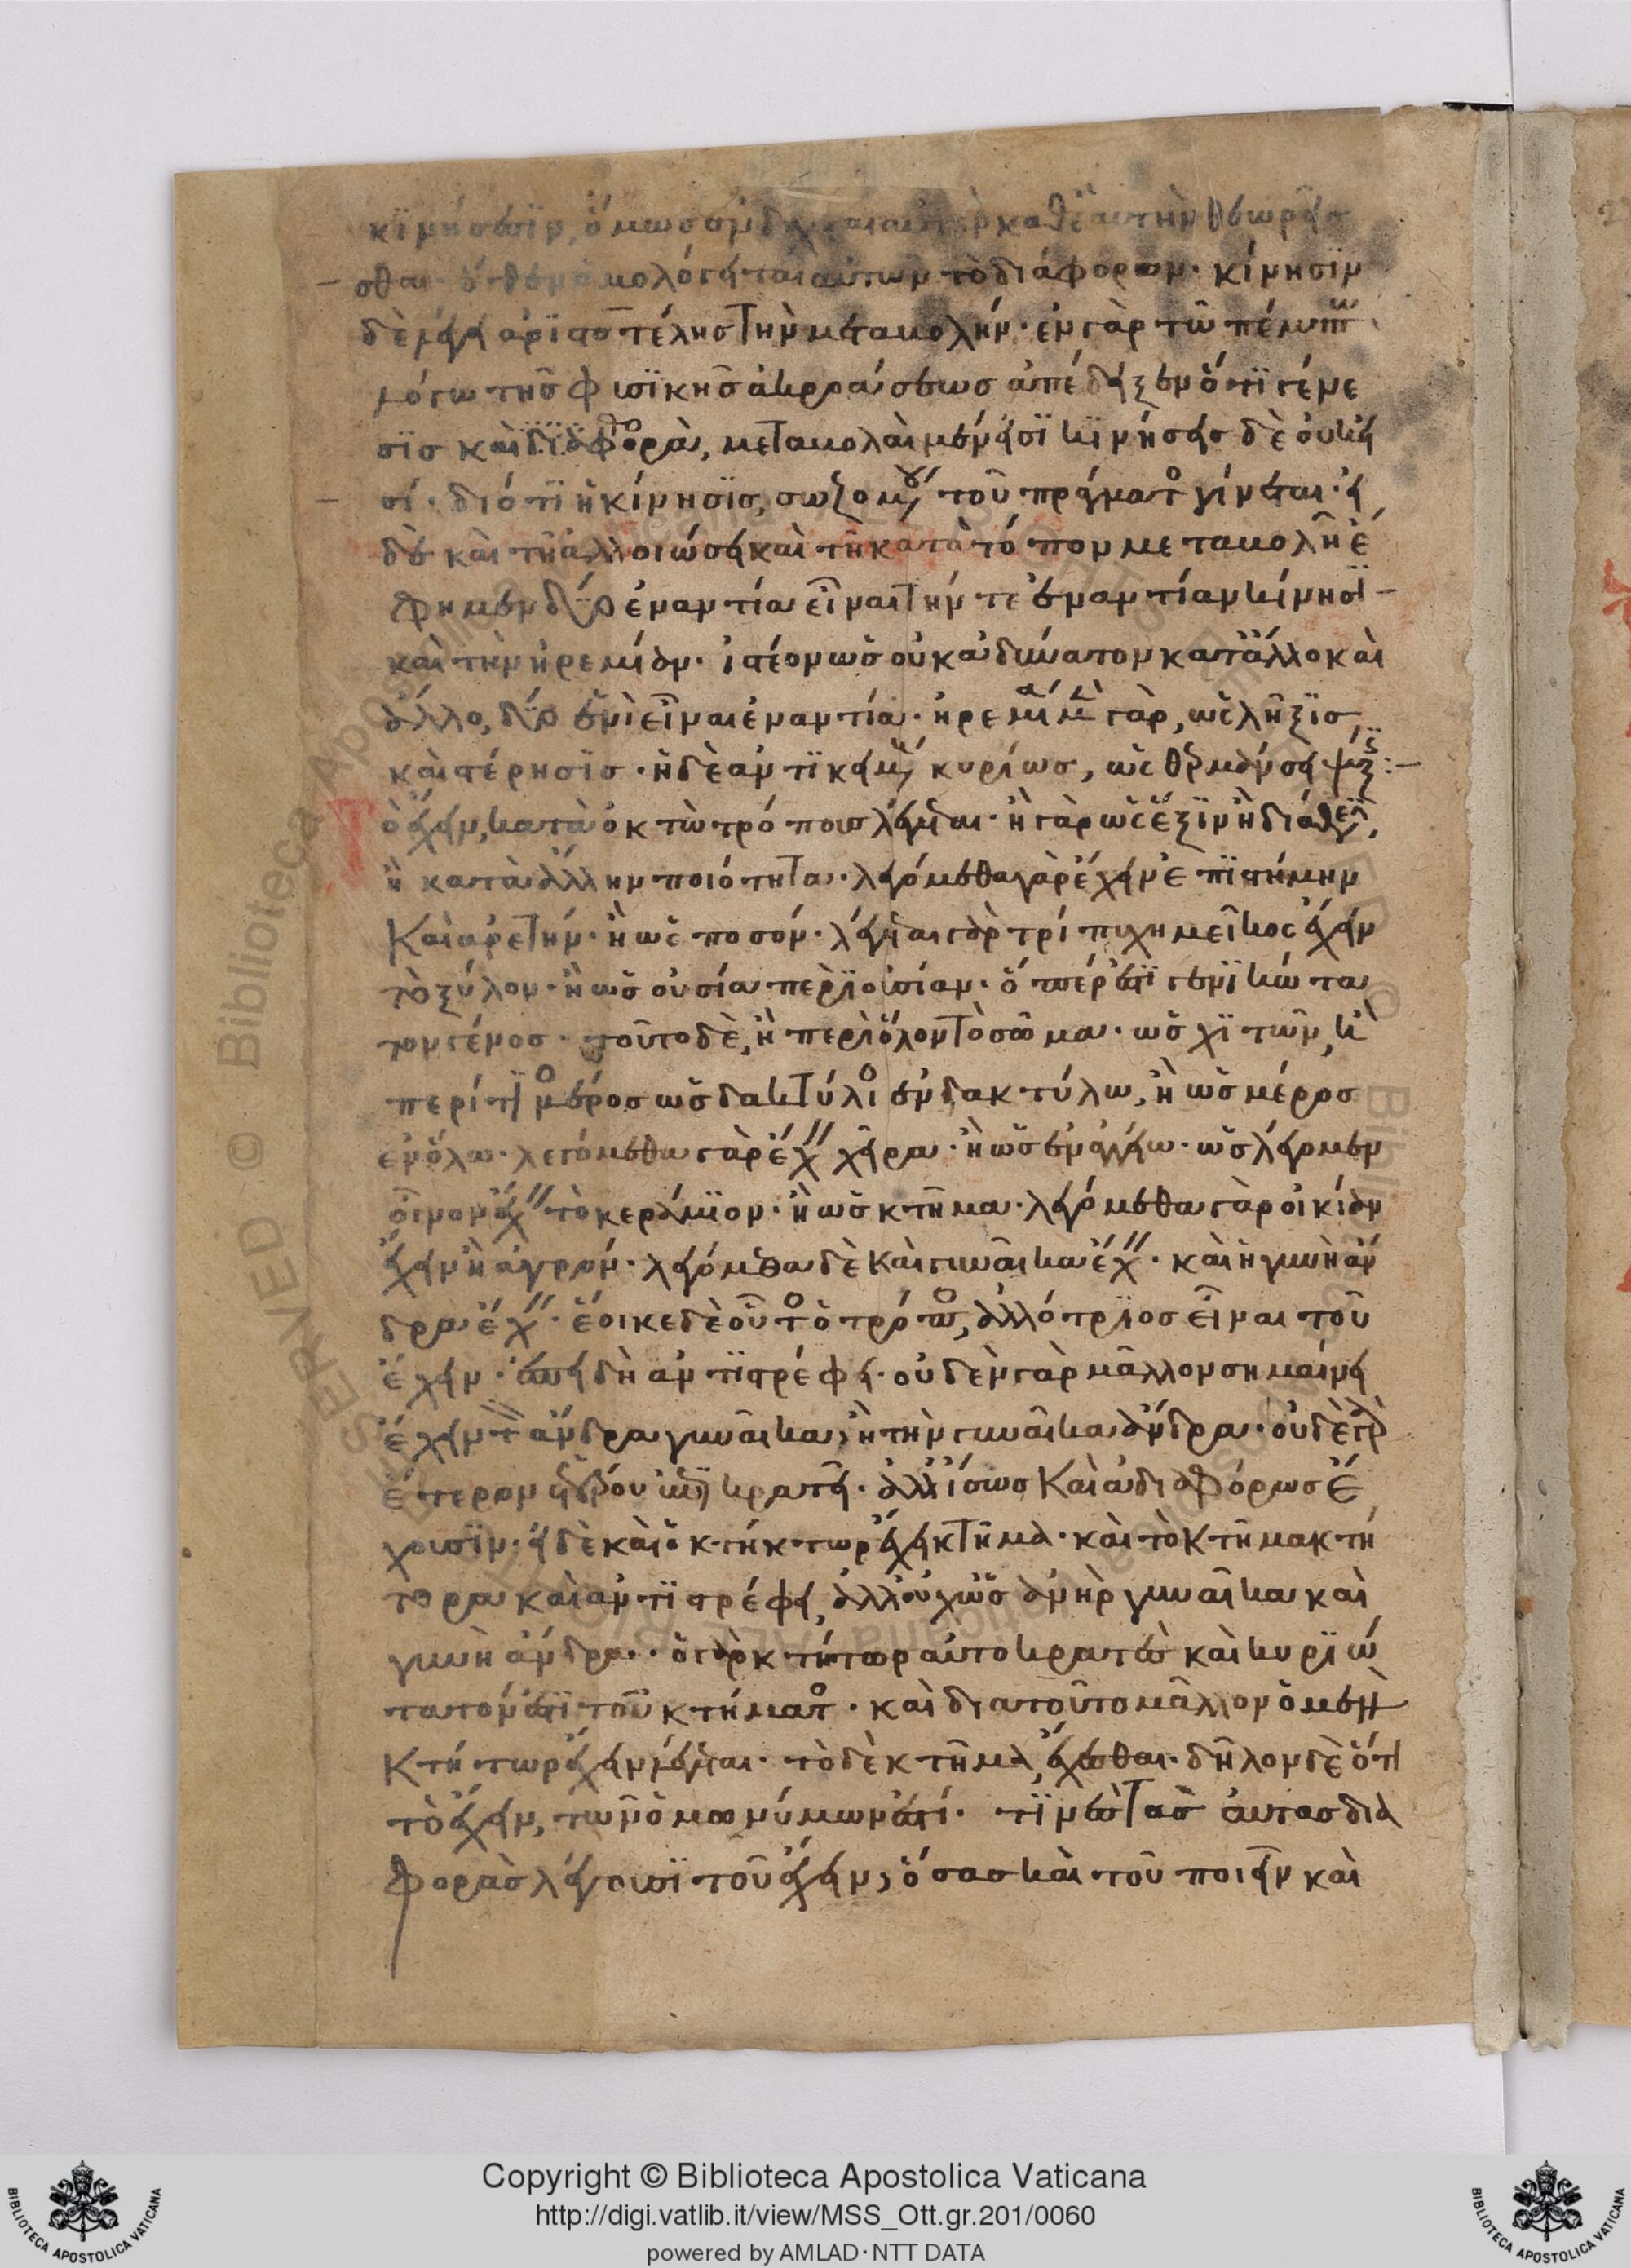 κϊνήσεσϊν, ὅμως ἐνδέχεται καθ' ἑαυτὴν θεωρεῖσ
σθαι. ὅθεν ὁμολογεῖται αὐτῶν τὸ διάφορον. κίνησϊν
δὲ λέγει ἀρϊστοτέλης τὴν μεταβολήν. ἐν γὰρ τῶ πέμπτω
λόγω τῆς φυσϊκῆς ἀκροάσεως ἀπέδειξεν ὅτϊ γένε
σϊς καὶ φθορὰ, μεταβολαὶ μέν εἰσϊ κϊνήσεις δὲ οὐκ εἰ
σί. διότϊ ἡ κίνησϊς, σωζομένου τοῦ πράγματος γίνεται. εἰ
δὲ καὶ τῆ ἀλλοιώσει καὶ τῆ κατὰ τόπον μεταβολῆ ἔ
φημεν δύο ἐναντία εἶναι τήν τε ἐναντίαν κίνησϊ
καὶ τὴν ἠρεμίαν. ἰστέον ὡς οὐκ ἀδύνατον κατ' ἄλλο καὶ
ἄλλο, δύο ἑνὶ εἶναι ἐναντία. ἠρεμία μὲν γὰρ, ὡς λῆξϊς
καὶ στέρησϊς. ἡ δὲ ἀντϊκειμένη κυρίως, ὡς θερμάνσει ψύξϊς :-
ὸ ἔχειν, κατὰ ὀκτὼ τρόπους λέγεται. ἢ γὰρ ὡς ἕξϊν ἢ διάθεσϊν,
ἢ κατὰ ἄλλην ποιότητα. λεγόμεθα γὰρ ἔχειν ἐπϊστήμην
καὶ ἀρετήν. ἢ ὡς ποσόν. λέγεται γὰρ τρίπηχη μεῖκος ἔχειν
τὸ ξύλον. ἢ ὡς οὐσία περὶ οὐσίαν. ὅπερ ἐστὶ γενϊκώτα
τον γένος. τοῦτο δὲ, ἢ περὶ ὅλον τὸ σῶμα. ὡς χϊτῶν, ἢ
περί τϊ μέρος ὡς δακτύλιος ἐν δακτύλω, ἢ ὡς μέρος
ἐν ὅλω. λεγόμεθα γὰρ ἔχειν χεῖρα. ἢ ὡς ἐν ἀγγείω. ὡς λέγομεν
οἶνον ἔχειν τὸ κεράμϊον. ἢ ὡς κτῆμα. λεγόμεθα γὰρ οἰκίαν
ἔχειν ἢ ἀγρόν. λεγόμεθα δὲ καὶ γυναῖκα ἔχειν. καὶ ἡ γυνὴ ἄν
δρα ἔχειν. ἔοικε δὲ οὗτος ὁ τρόπος, ἀλλότρϊος εἶναι τοῦ
ἔχειν. ἐπειδὴ ἀντϊστρέφει. οὐδὲν γὰρ μᾶλλον σημαίνει
ἔχειν τὸν ἄνδρα γυναῖκα, ἢ τὴν γυναῖκα ἄνδρα. οὐδέτερον
ἑτέρου κρατεῖ. ἀλλ' ἴσως καὶ ἀδιαφόρως ἔ
χουσϊν. εἰ δὲ καὶ ὁ κτήκτωρ ἔχει κτῆμα. καὶ τὸ κτῆμα κτή
τορα καὶ ἀντϊστρέφει, ἀλλ' οὐχ ὡς ἀνὴρ γυναῖκα καὶ
γυνὴ ἄνδρα. ὁ γὰρ κτήτωρ αὐτοκρατὲς καὶ κυρϊώ
τατόν ἐστϊ τοῦ κτήματος. καὶ διατοῦτο μᾶλλον ὁ μὲν
κτήτωρ ἔχειν λέγεται. τὸ δὲ κτῆμα ἔχεσθαι. δῆλον δὲ ὅτι
τὸ ἔχειν, τῶν ὁμωνύμων ἐστί. τϊνὲς τὰς αὐτας δια
φορὰς λέγουσϊ τοῦ ἔχειν, ὅσας καὶ τοῦ ποιεῖν καὶ
Copyright © Biblioteca Apostolica Vaticana
http://digi.vatlib.it/view/MSS_Ott.gr.201/0060
powered by AMLAD·NTT DATA